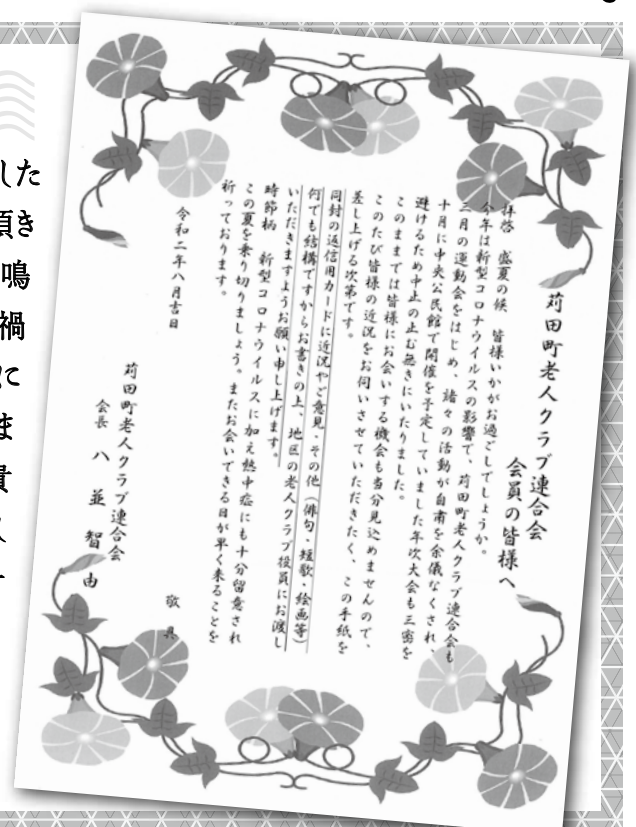 苅田町老人クラブ連合会
会員の皆様へ
拝啓　盛夏の候　皆様いかがお過ごしでしょうか。
今年は新型コロナウイルスの影響で、苅田町老人クラブ連合会も
三月の運動会をはじめ、諸々の活動が自粛を余儀なくされ、
十月に中央公民館で開催を予定していました年次大会も三密を
避けるため中止の止む無きにいたりました。
このままでは皆様にお会いする機会も当分見込めませんので、
このたび皆様の近況をお伺いさせていただきたく、この手紙を
差し上げる次第です。
同封の返信用カードに近況やご意見・その他（俳句・短歌・絵画等）
何でも結構ですからお書きの上、地区の老人クラブ役員にお渡し
いただきますようお願い申し上げます。
時節柄　新型コロナウイルスに加え熱中症にも十分留意され
この夏を乗り切りましょう。またお会いできる日が早く来ることを
祈っております。
敬具
令和二年八月吉日
苅田町老人クラブ連合会
会長　八並智由
した
頂き
鳴
禍
に
ま
貴